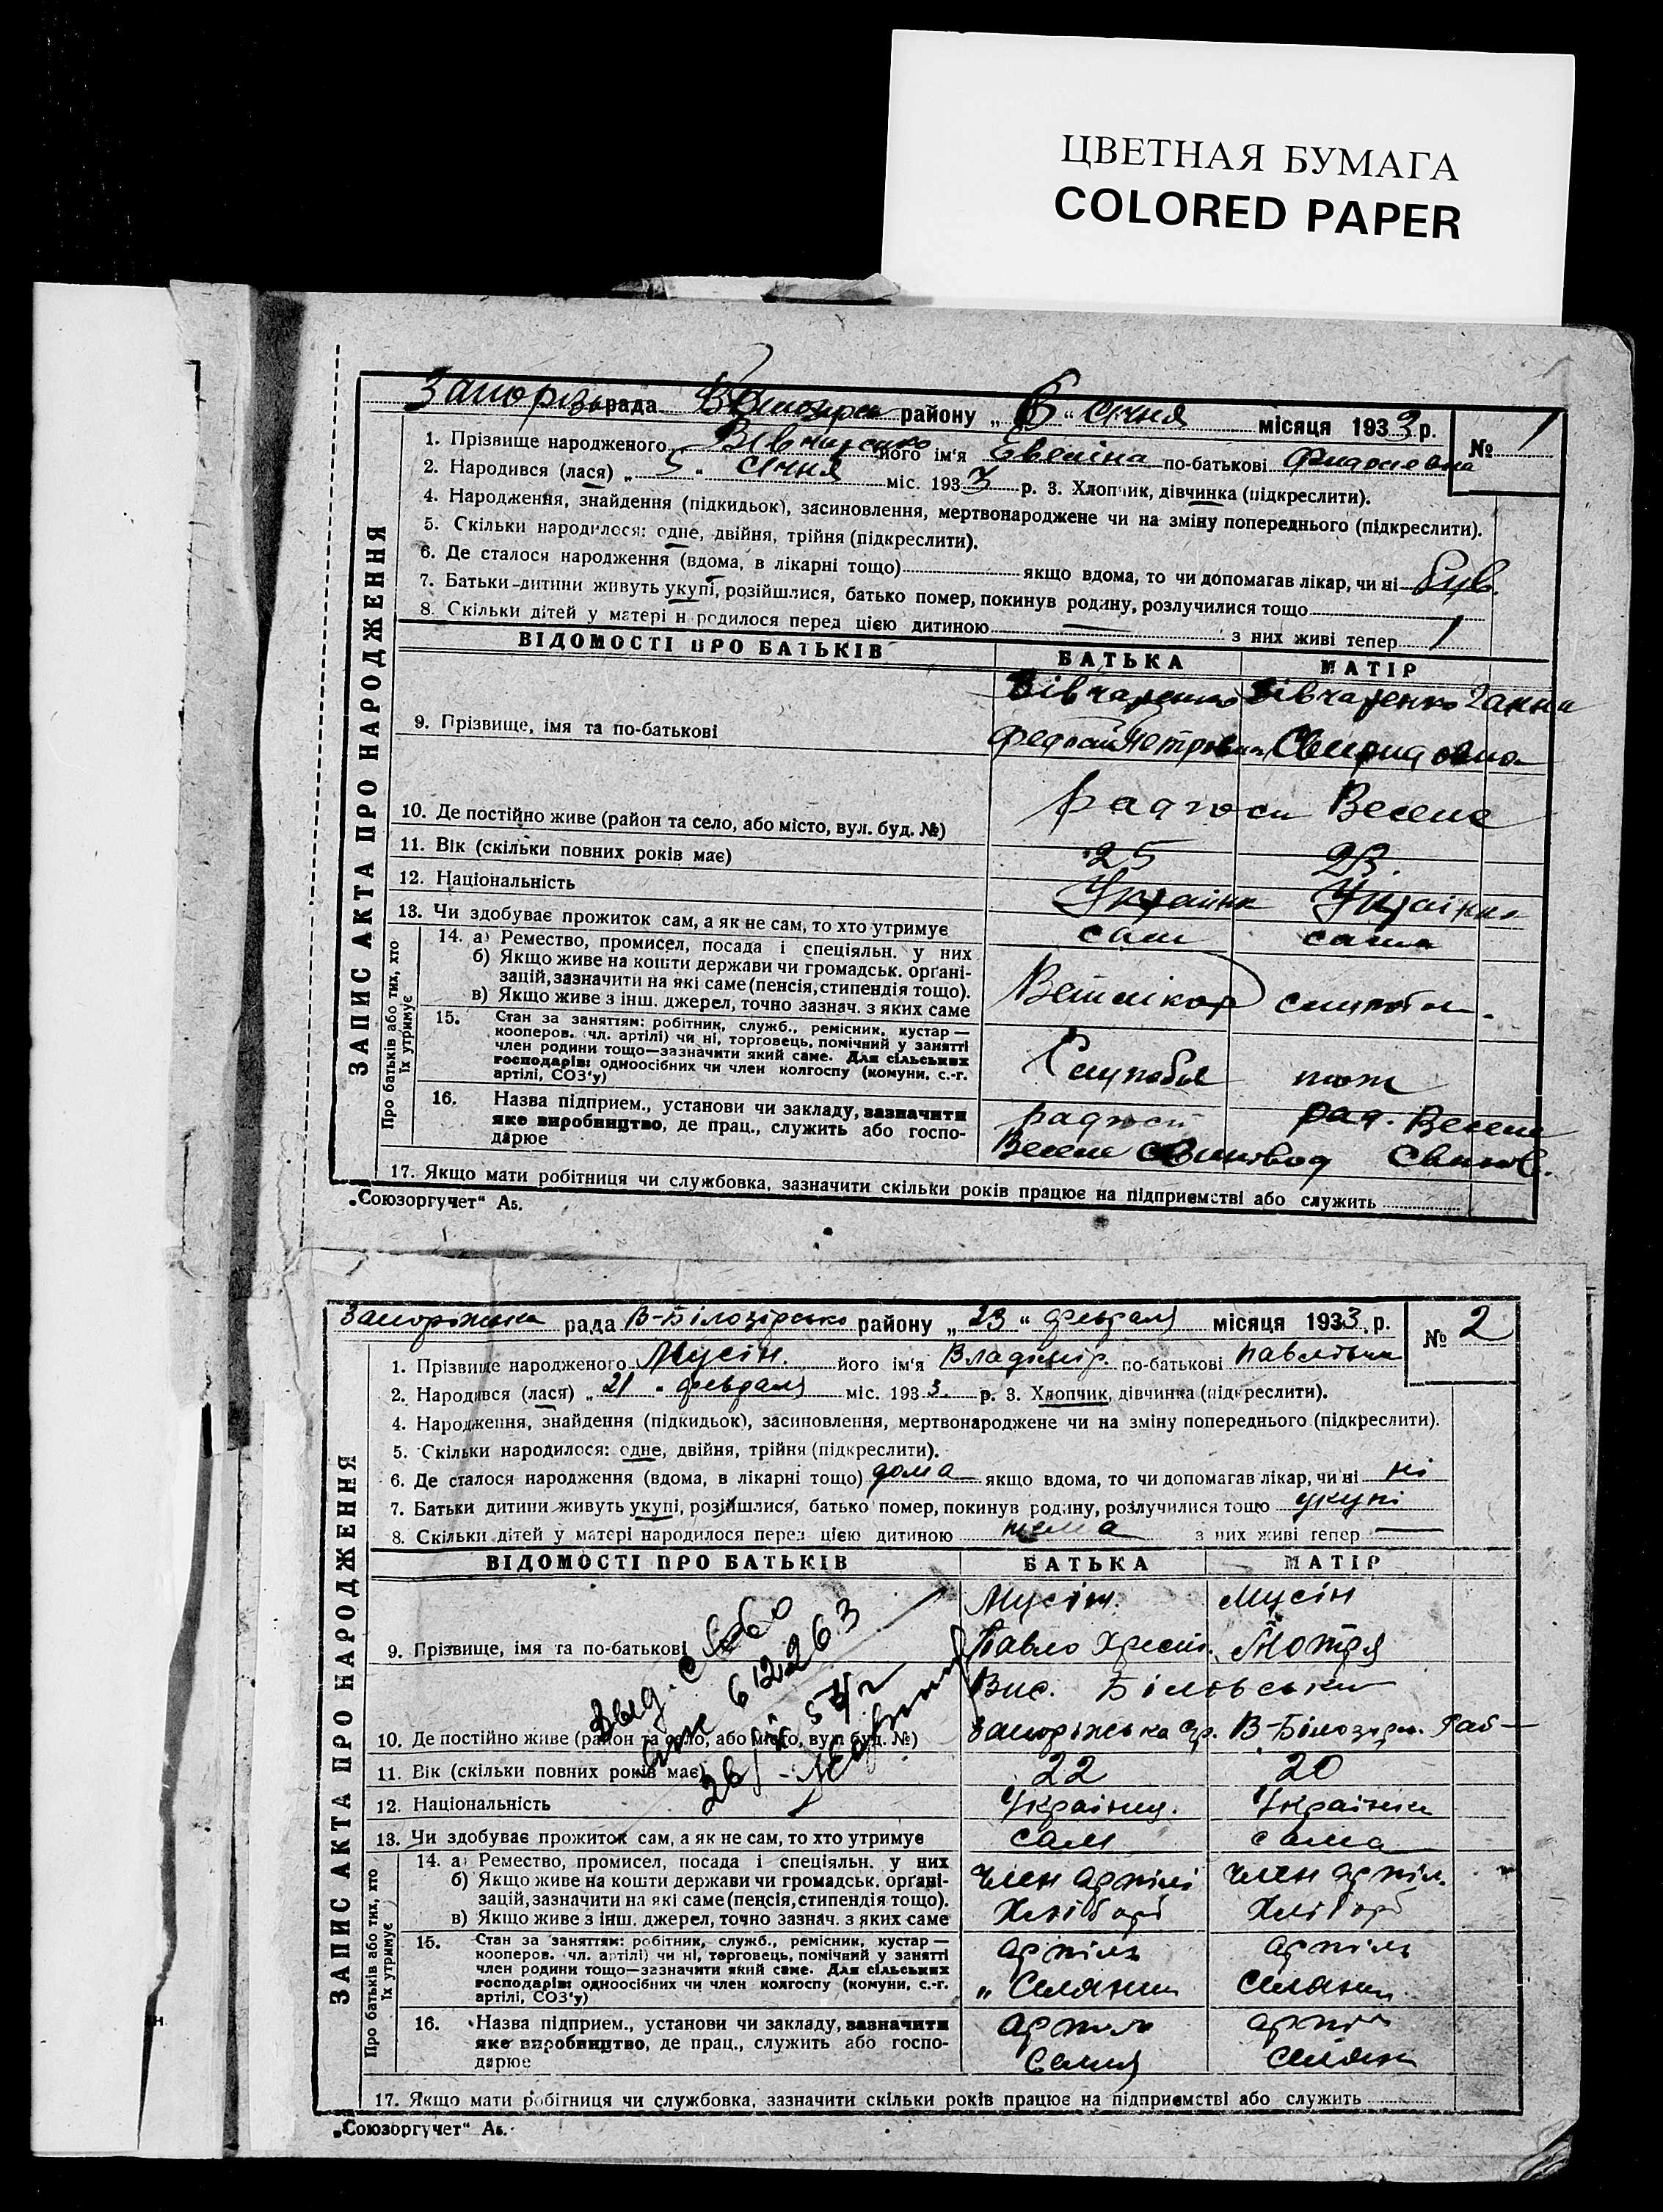 ЦВЕТНАЯ БУМАГА
COLORED PAPER
рада района „6“ січня місяця 1933 р. № 1
1. Прізвище народженого його ім'я Евеліна по-батькові
2. Народився (лася) „5“ січня міс. 1933 р. 3. Хлопчик, дівчинка (підкреслити).
4. Народження, знайдення (підкидьок), засиновлення, мертвонароджене чи на зміну попереднього (підкреслити).
5. Скільки народилося: одне, двійня, трійня (підкреслити).
6. Де сталося народження (вдома, в лікарні тощо) якщо вдома, то чи допомагав лікар, чи ні
7. Батьки дитини живуть укупі, розійшлися, батько помер, покинув родину, розлучилися тощо
8. Скільки дітей у матері народилося перед цією дитиною — з них живі тепер 1
ВІДОМОСТІ ПРО БАТЬКІВ БАТЬКА МАТІР
Вівчаренко Вівчаренко Ганна
9. Прізвище, імя та по-батькові Федосій Петрович
10. Де постійно живе (район та село, або місто, вул. буд. №) радгосп Веселе
11. Вік (скільки повних років має) 25 23.
12. Національність Українка
13. Чи здобуває прожиток сам, а як не сам, то хто утримує сам сама
14. а) Ремество, промисел, посада і спеціяльн. у них
б) Якщо живе на кошти держави чи громадськ. органі-
зацій, зазначити на які саме (пенсія, стипендія тощо). Ветлікар
в) Якщо живе з інш. джерел, точно зазнач. з яких саме
15. Стан за заняттям: робітник, служб., ремісник, кустар —
кооперов. чл. артілі) чи ні, торговець, помічний у занятті
член родини тощо—зазначити який саме. Для сільських
господарів: одноосібних чи член колгоспу (комуни, с.-г.
артілі, СОЗ'у)
16. Назва підприєм., установи чи закладу, зазначити радгосп рад. Веселе
яке виробництво, де прац., служить або госпо-
дарює Веселе Свиновод
17. Якщо мати робітниця чи службовка, зазначити скільки років працює на підприємстві або служить
„Союзоргучет“ А5.
ЗАПИС АКТА ПРО НАРОДЖЕННЯ
Про батьків або тих, хто їх утримує
Запоріжська рада В-Білозірсько району „23“ февраля місяця 1933 р. № 2
1. Прізвище народженого Мусін. його ім'я Владімір. по-батькові
2. Народився (лася) „21“ февраля міс. 1933. р. 3. Хлопчик, дівчинка (підкреслити).
4. Народження, знайдення (підкидьок), засиновлення, мертвонароджене чи на зміну попереднього (підкреслити).
5. Скільки народилося: одне, двійня, трійня (підкреслити).
6. Де сталося народження (вдома, в лікарні тощо) дома якщо вдома, то чи допомагав лікар, чи ні ні
7. Батьки дитини живуть укупі, розійшлися, батько помер, покинув родину, розлучилися тощо укупі
8. Скільки дітей у матері народилося перед цією дитиною нема з них живі тепер —
ВІДОМОСТІ ПРО БАТЬКІВ БАТЬКА МАТІР
Мусін. Мусін
9. Прізвище, імя та по-батькові Павло Мотря
612263
10. Де постійно живе (район та село, або місто, вул. буд. №) Запоріжська
11. Вік (скільки повних років має) 22 20
12. Національність Українец. Українка
13. Чи здобуває прожиток сам, а як не сам, то хто утримує сам сама
14. а) Ремество, промисел, посада і спеціяльн. у них член артілі член артіл.
б) Якщо живе на кошти держави чи громадськ. органі-
зацій, зазначити на які саме (пенсія, стипендія тощо). Хлібороб Хлібороб
в) Якщо живе з інш. джерел, точно зазнач. з яких саме
15. Стан за заняттям: робітник, служб., ремісник, кустар — артіль артіль
кооперов. чл. артілі) чи ні, торговець, помічний у занятті
член родини тощо—зазначити який саме. Для сільських
господарів: одноосібних чи член колгоспу (комуни, с.-г. „Селянин
артілі, СОЗ'у)
16. Назва підприєм., установи чи закладу, зазначити
яке виробництво, де прац., служить або госпо-
дарює
17. Якщо мати робітниця чи службовка, зазначити скільки років працює на підприємстві або служить
„Союзоргучет“ А5.
ЗАПИС АКТА ПРО НАРОДЖЕННЯ
Про батьків або тих, хто їх утримує